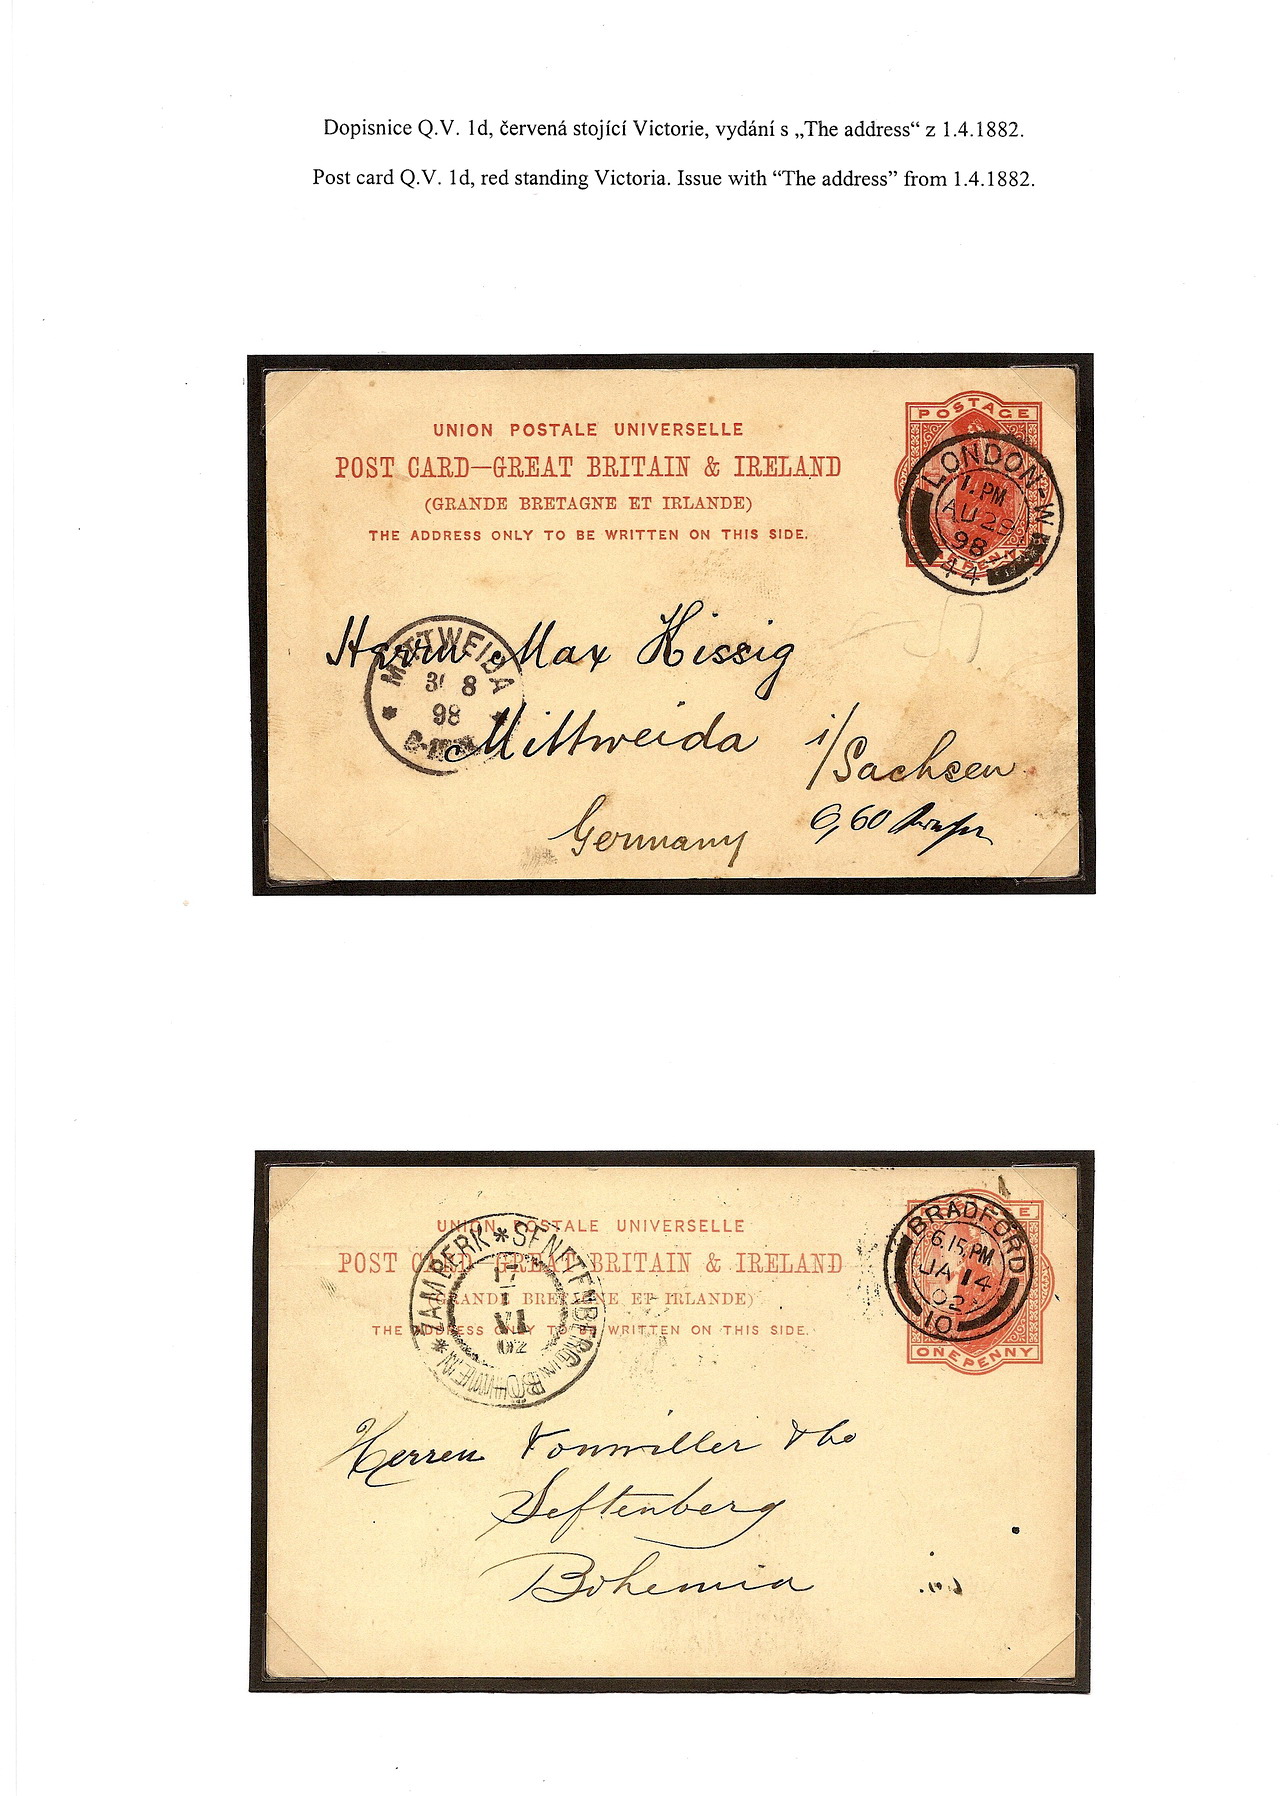 Dopisnice Q.V. 1d, červená stojící Victorie, vydání s „The address“ z 1.4.1882.
Post card Q.V. 1d, red standing Victoria. Issue with “The address” from 1.4.1882.
POSTAGE
UNION POSTALE UNIVERSELLE
POST CARD—GREAT BRITAIN & IRELAND
(GRANDE BRETAGNE ET IRLANDE)
THE ADDRESS ONLY TO BE WRITTEN ON THIS SIDE.
LONDON-W
1. PM
AU 29
98
44
MITTWEIDA
8
98
Herrn Max Hissig
Mittweida i/Sachsen
Germany
6,60
UNION POSTALE UNIVERSELLE
POST CARD—GREAT BRITAIN & IRELAND
(GRANDE BRETAGNE ET IRLANDE)
THE ADDRESS ONLY TO BE WRITTEN ON THIS SIDE.
BRADFORD
6.15 PM
JA 14
02
10
ONE PENNY
ŽAMBERK * SENFTENBERG in BÖHMEN *
17
I
VI
02
Herren Vonwiller & Co
Seftenberg
Bohemia